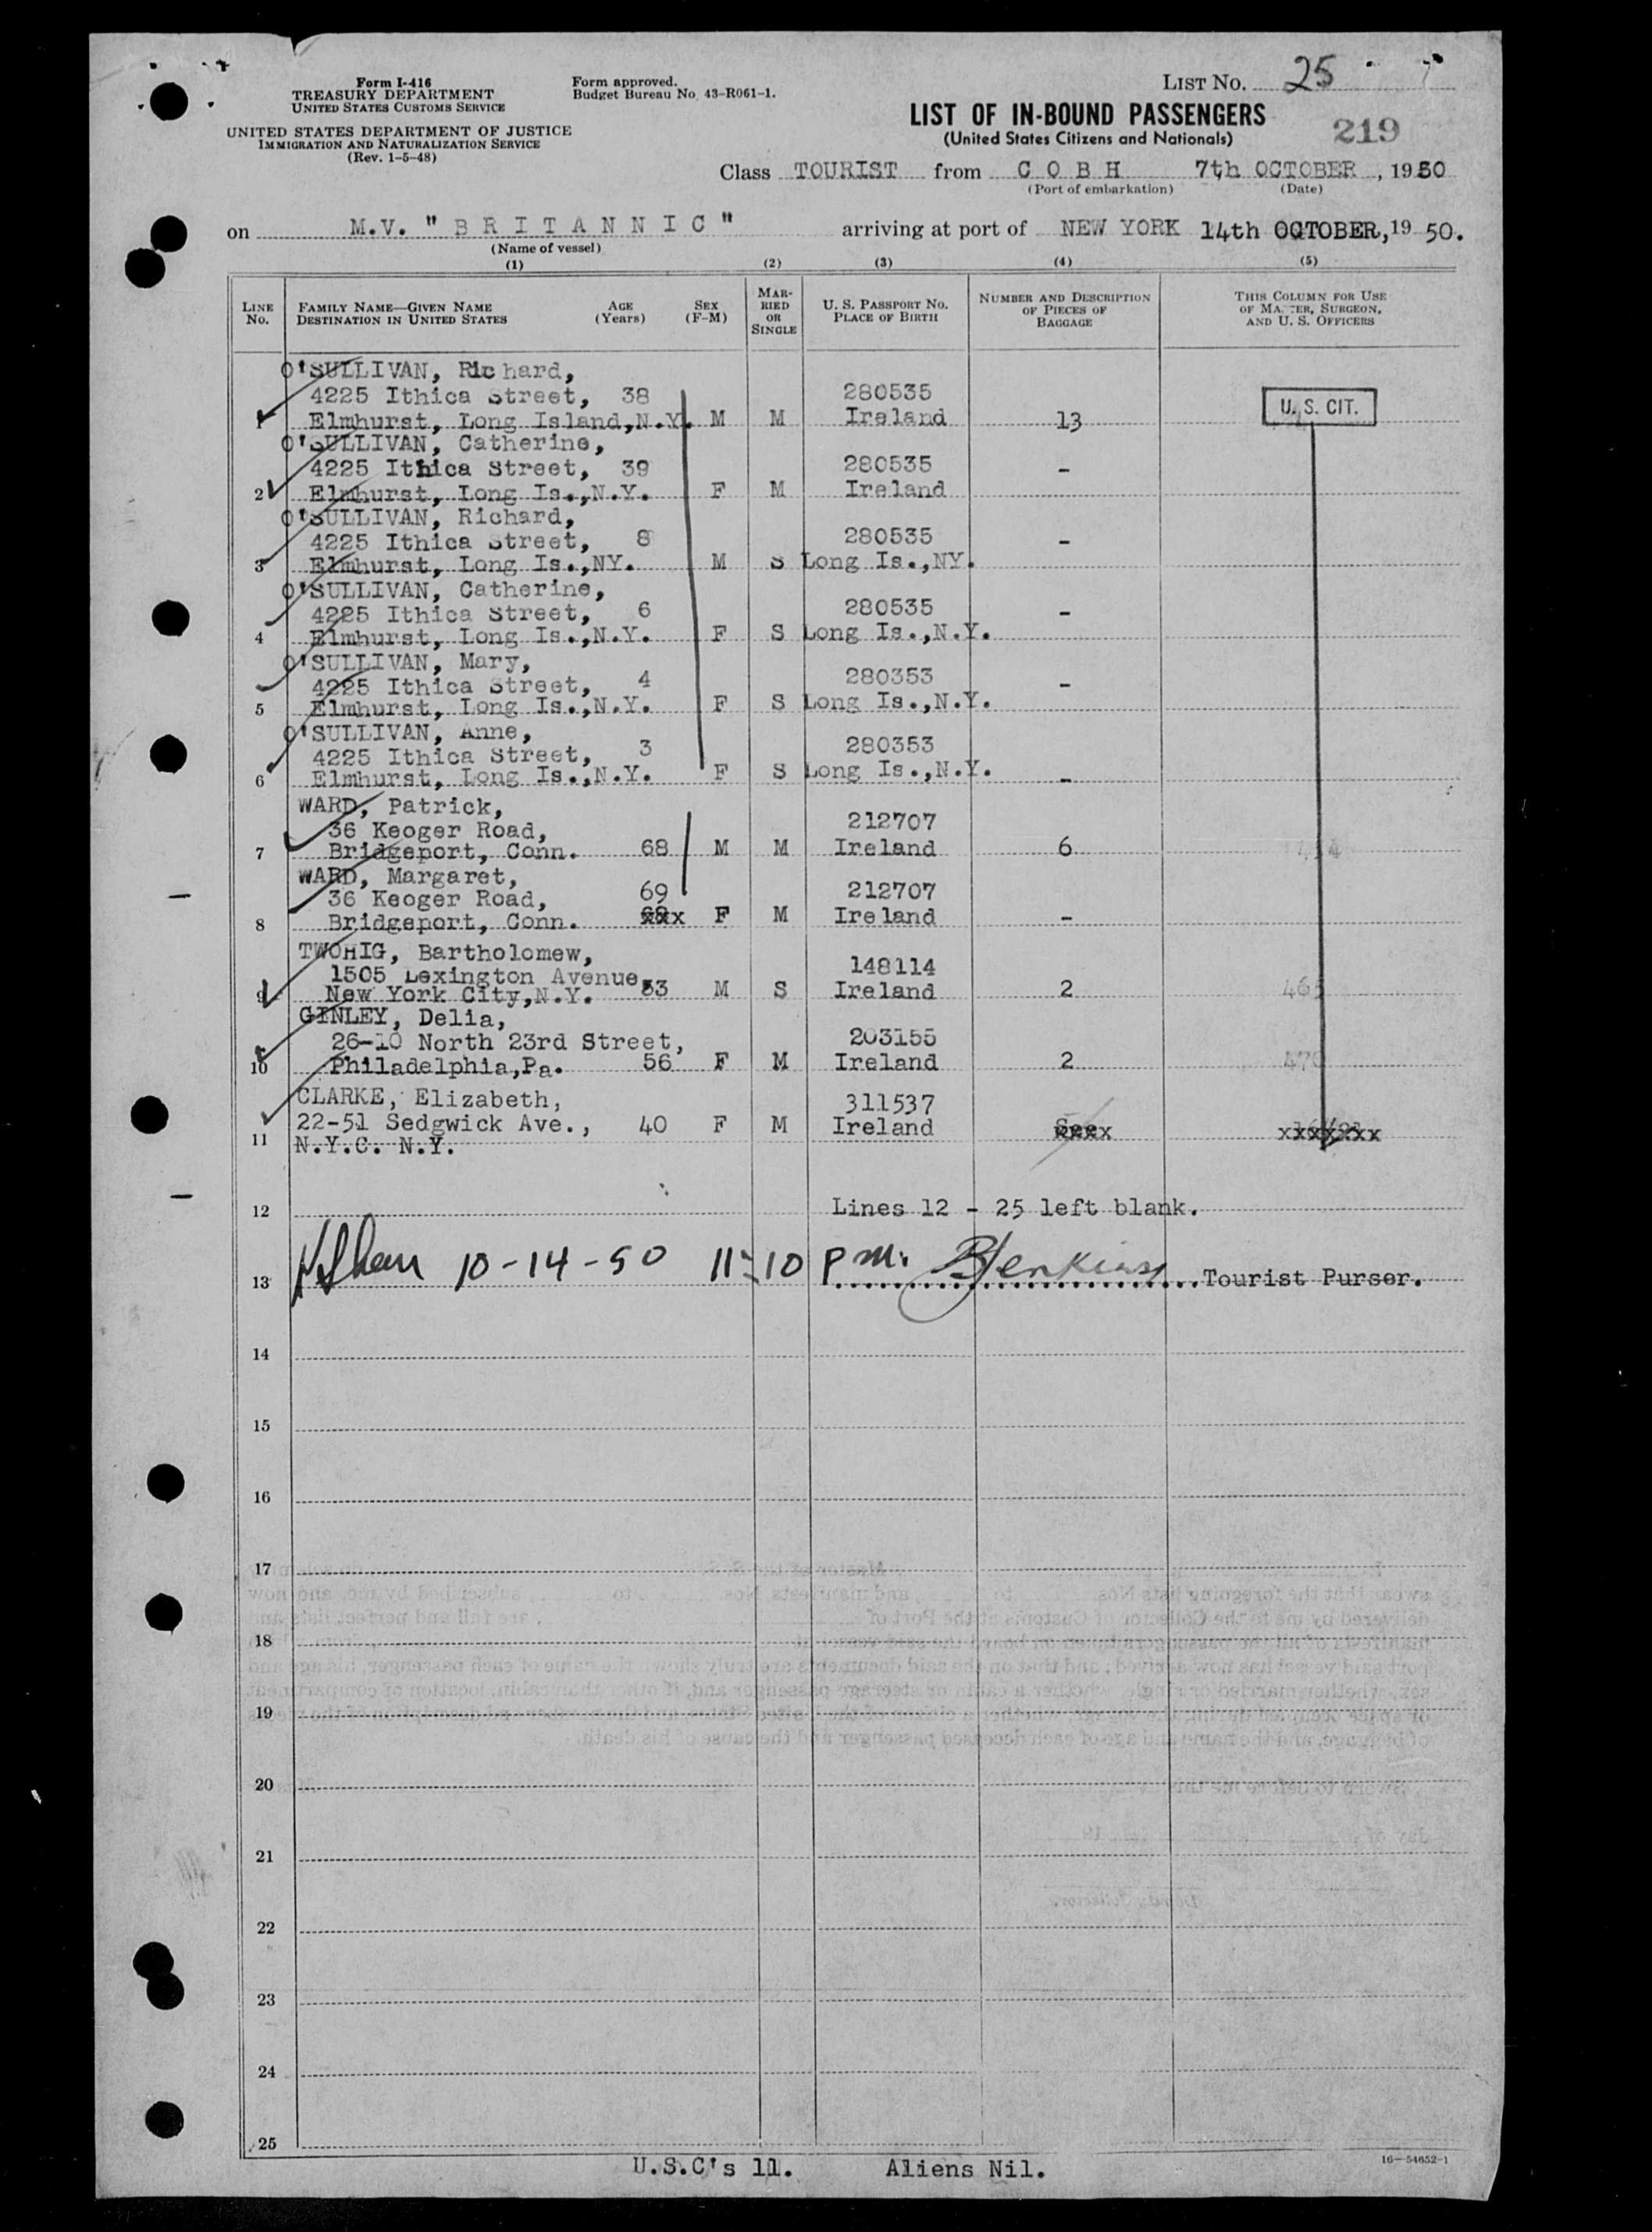 Form I-416
TREASURY DEPARTMENT
UNITED STATES CUSTOMS SERVICE
UNITED STATES DEPARTMENT OF JUSTICE
IMMIGRATION AND NATURALIZATION SERVICE
(Rev. 1-5-48)
Form approved.
Budget Bureau No. 43-R061-1.
LIST No. 25
LIST OF IN-BOUND PASSENGERS
(United States Citizens and Nationals)
219
Class TOURIST from C O B H 7th OCTOBER, 1950
(Port of embarkation) (Date)
on M.V. "B R I T A N N I C" arriving at port of NEW YORK 14th OCTOBER, 19 50.
(Name of vessel)
(1) (2) (3) (4) (5)
LINE No.
FAMILY NAME—GIVEN NAME
DESTINATION IN UNITED STATES
AGE (Years)
SEX (F-M)
MARRIED OR SINGLE
U. S. PASSPORT No.
PLACE OF BIRTH
NUMBER AND DESCRIPTION OF PIECES OF BAGGAGE
THIS COLUMN FOR USE OF MASTER, SURGEON, AND U. S. OFFICERS
O'SULLIVAN, Richard,
4225 Ithica Street, 38 280535 U. S. CIT.
1 Elmhurst, Long Island,N.Y. M M Ireland 13
O'SULLIVAN, Catherine,
4225 Ithica Street, 39 280535 -
2 Elmhurst, Long Is.,N.Y. F M Ireland
O'SULLIVAN, Richard,
4225 Ithica Street, 8 280535 -
3 Elmhurst, Long Is.,NY. M S Long Is.,NY.
O'SULLIVAN, Catherine,
4225 Ithica Street, 6 280535 -
4 Elmhurst, Long Is.,N.Y. F S Long Is.,N.Y.
O'SULLIVAN, Mary,
4225 Ithica Street, 4 280353 -
5 Elmhurst, Long Is.,N.Y. F S Long Is.,N.Y.
O'SULLIVAN, Anne,
4225 Ithica Street, 3 280353
6 Elmhurst, Long Is.,N.Y. F S Long Is.,N.Y. -
WARD, Patrick,
36 Keoger Road, 212707
7 Bridgeport, Conn. 68 M M Ireland 6
WARD, Margaret,
36 Keoger Road, 69 212707
8 Bridgeport, Conn. xxx F M Ireland -
TWOHIG, Bartholomew,
1505 Lexington Avenue, 148114
9 New York City,N.Y. 53 M S Ireland 2 465
GINLEY, Delia,
26-10 North 23rd Street, 203155
10 Philadelphia,Pa. 56 F M Ireland 2
CLARKE, Elizabeth, 311537
22-51 Sedgwick Ave., 40 F M Ireland xxxx xxxxxxx
11 N.Y.C. N.Y.
12 Lines 12 - 25 left blank.
13 10-14-50 11:10 P.M. BJenkins Tourist Purser.
14
15
16
17
18
19
20
21
22
23
24
25
U.S.C's 11. Aliens Nil.
16—54652-1